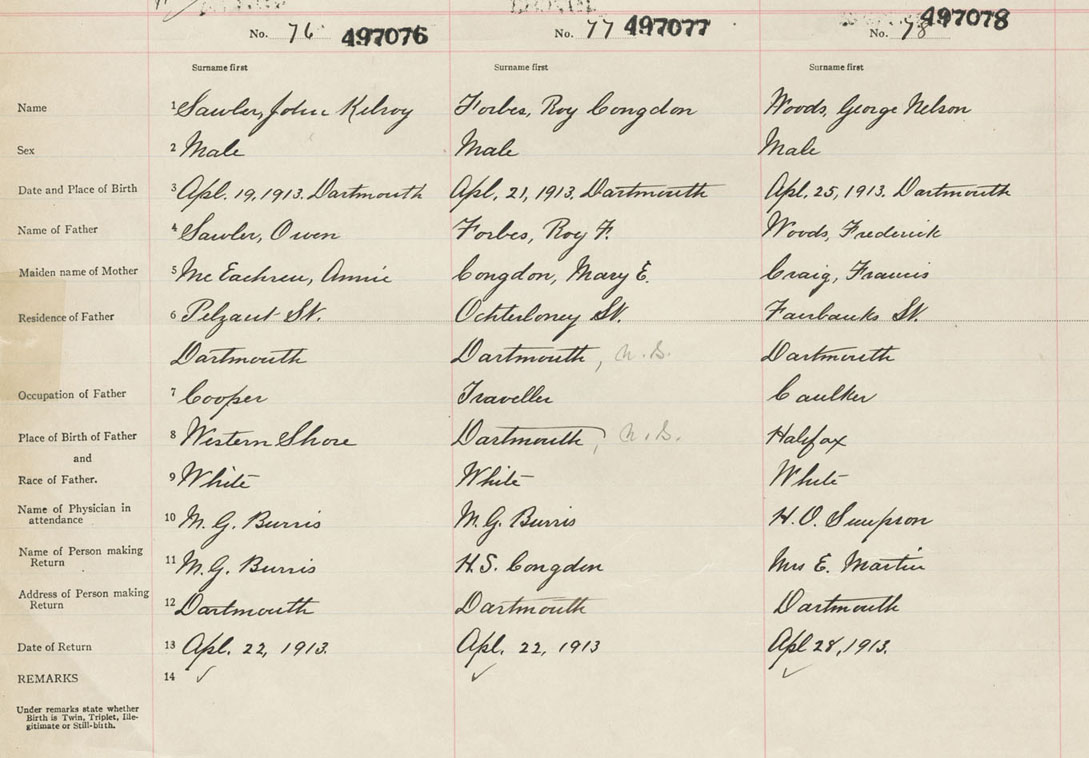 No. 76 497076 No. 77 497077 No. 78 497078
Surname first Surname first Surname first
Name 1 Sawler, John Kelroy Forbes, Roy Congdon Woods, George Nelson
Sex 2 Male Male Male
Date and Place of Birth 3 Apl. 19, 1913. Dartmouth Apl. 21, 1913. Dartmouth Apl. 25, 1913. Dartmouth
Name of Father 4 Sawler, Owen Forbes, Roy F. Woods, Frederick
Maiden name of Mother 5 McEachren, Annie Congdon, Mary E. Craig, Francis
Residence of Father 6 Pelzant St. Ochterloney St. Fairbanks St.
Dartmouth Dartmouth, N.S. Dartmouth
Occupation of Father 7 Cooper Traveller Caulker
Place of Birth of Father 8 Western Shore Dartmouth, N.S. Halifax
and
Race of Father. 9 White White White
Name of Physician in
attendance 10 M.G. Burris M.G. Burris H.O. Simpson
Name of Person making
Return 11 M.G. Burris H.S. Congdon Mrs E. Martin
Address of Person making
Return 12 Dartmouth Dartmouth Dartmouth
Date of Return 13 Apl. 22, 1913. Apl. 22, 1913 Apl 28, 1913.
REMARKS 14
Under remarks state whether
Birth is Twin, Triplet, Ille-
gitimate or Still-birth.